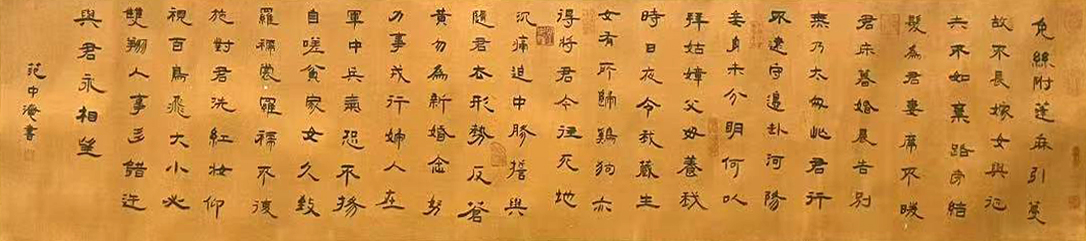 兔絲附蓬麻引蔓
故不長嫁女與征
夫不如棄路旁結
髮為君妻席不暖
君床暮婚晨告別
無乃太匆忙君行
不遠守邊赴河陽
妾身未分明何以
拜姑嫜父母養我
時日夜令我藏生
女有所歸雞狗亦
得將君今往死地
沉痛迫中腸誓與
隨君去形勢反蒼
黃勿為新婚念努
力事戎行婦人在
軍中兵氣恐不揚
自嗟貧家女久致
羅襦裳羅襦不復
施對君洗紅妝仰
視百鳥飛大小必
雙翔人事多錯迕
與君永相望
范中淹書